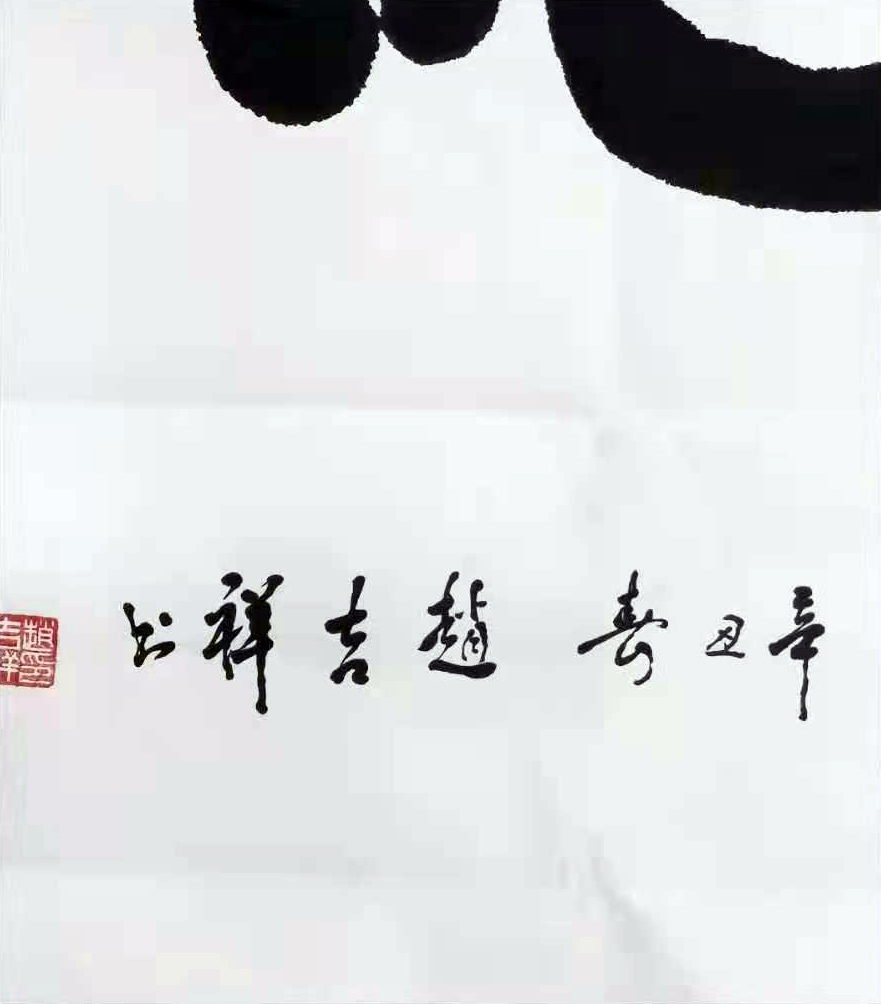 辛丑春 趙吉祥书
趙印吉祥